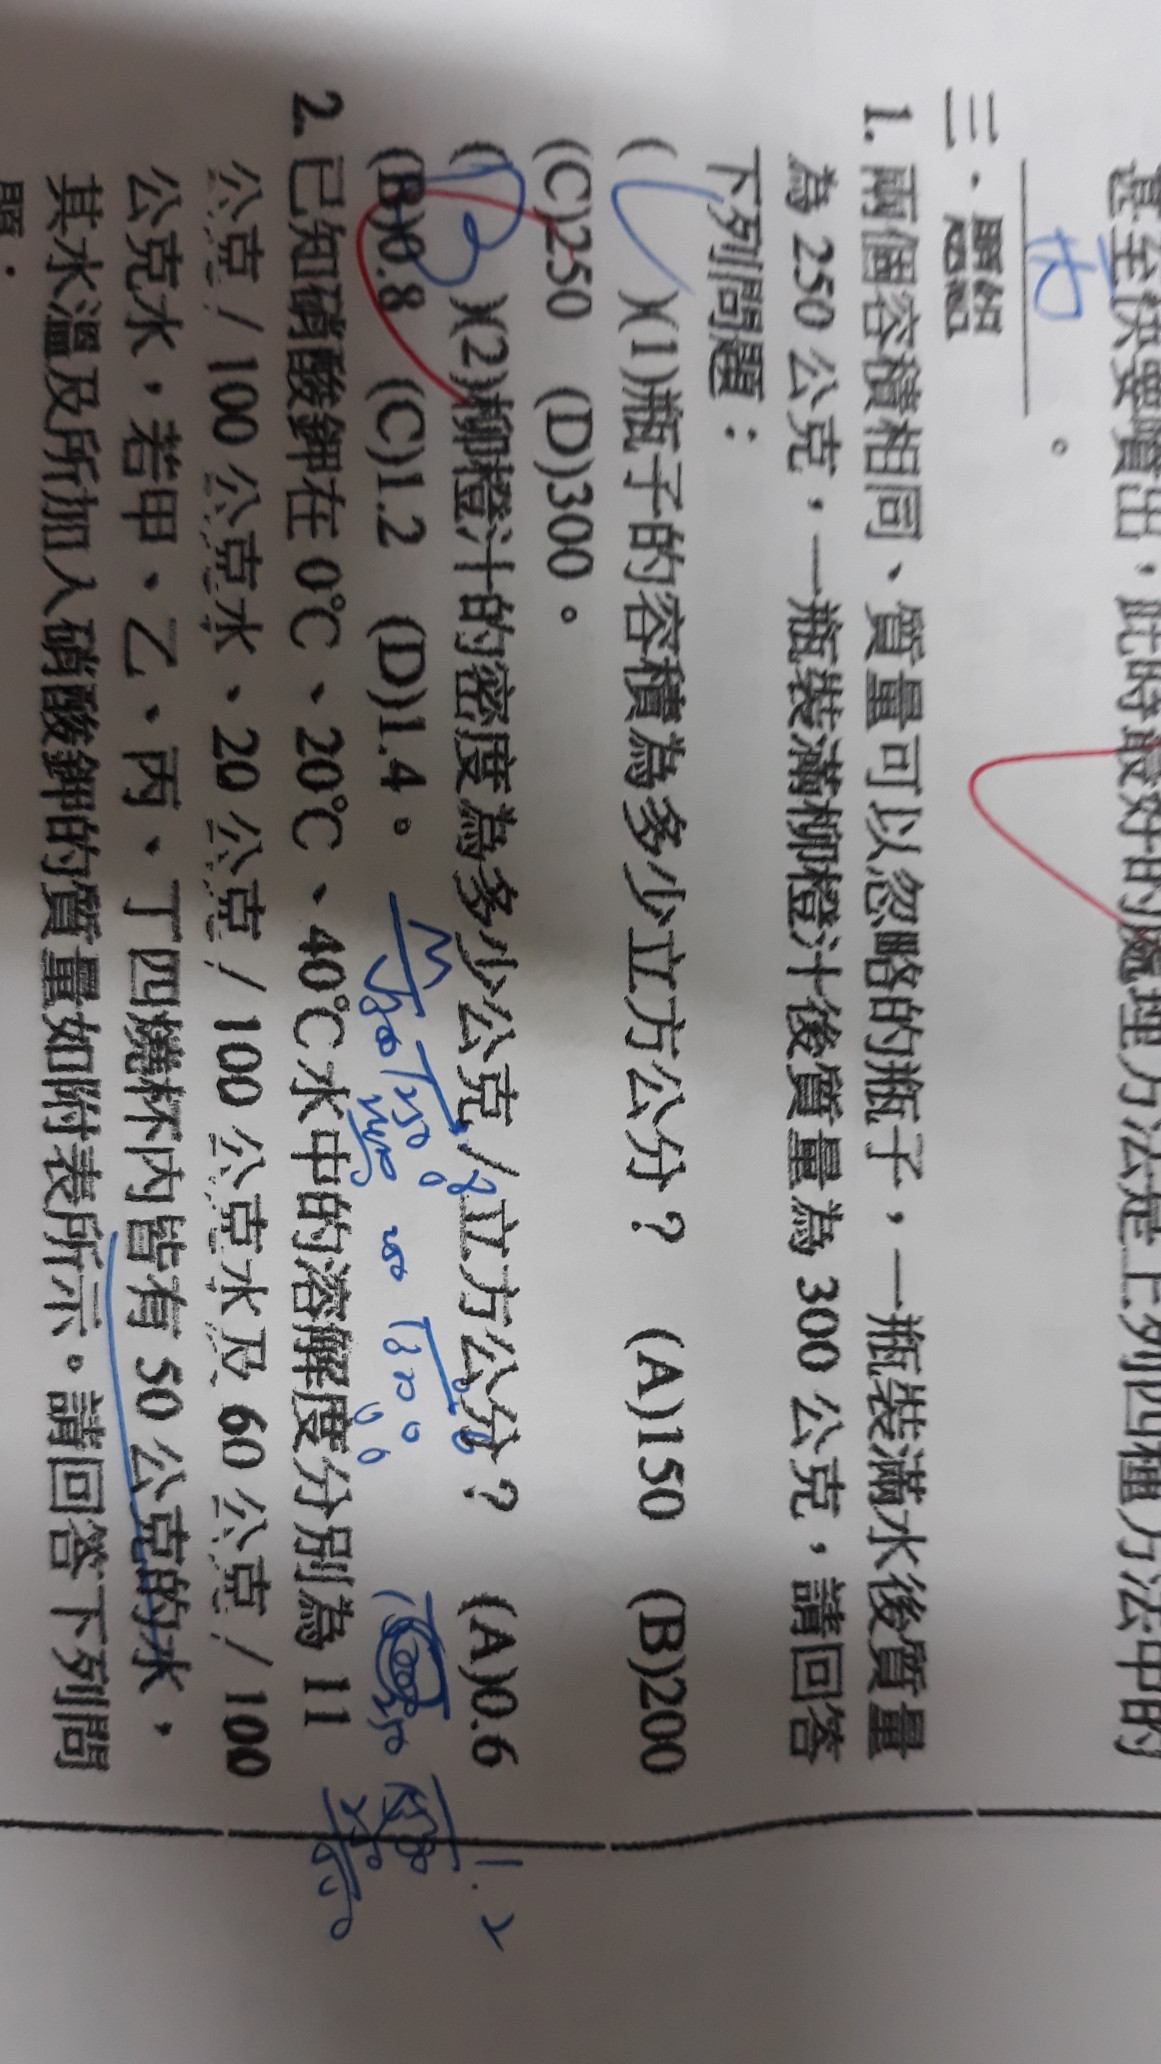 甚至快要噴出，此時最好的處理方法是上列四種方法中的
。
三、題組
1. 兩個容積相同、質量可以忽略的瓶子，一瓶裝滿水後質量
為 250 公克，一瓶裝滿柳橙汁後質量為 300 公克，請回答
下列問題：
( C )(1)瓶子的容積為多少立方公分？ (A)150 (B)200
(C)250 (D)300。
( B )(2)柳橙汁的密度為多少公克／立方公分？ (A)0.6
(B)0.8 (C)1.2 (D)1.4。
1.2
2. 已知硝酸鉀在 0℃、20℃、40℃水中的溶解度分別為 11
公克／100 公克水、20 公克／100 公克水及 60 公克／100
公克水，若甲、乙、丙、丁四燒杯內皆有 50 公克的水，
其水溫及所加入硝酸鉀的質量如附表所示。請回答下列問
題：